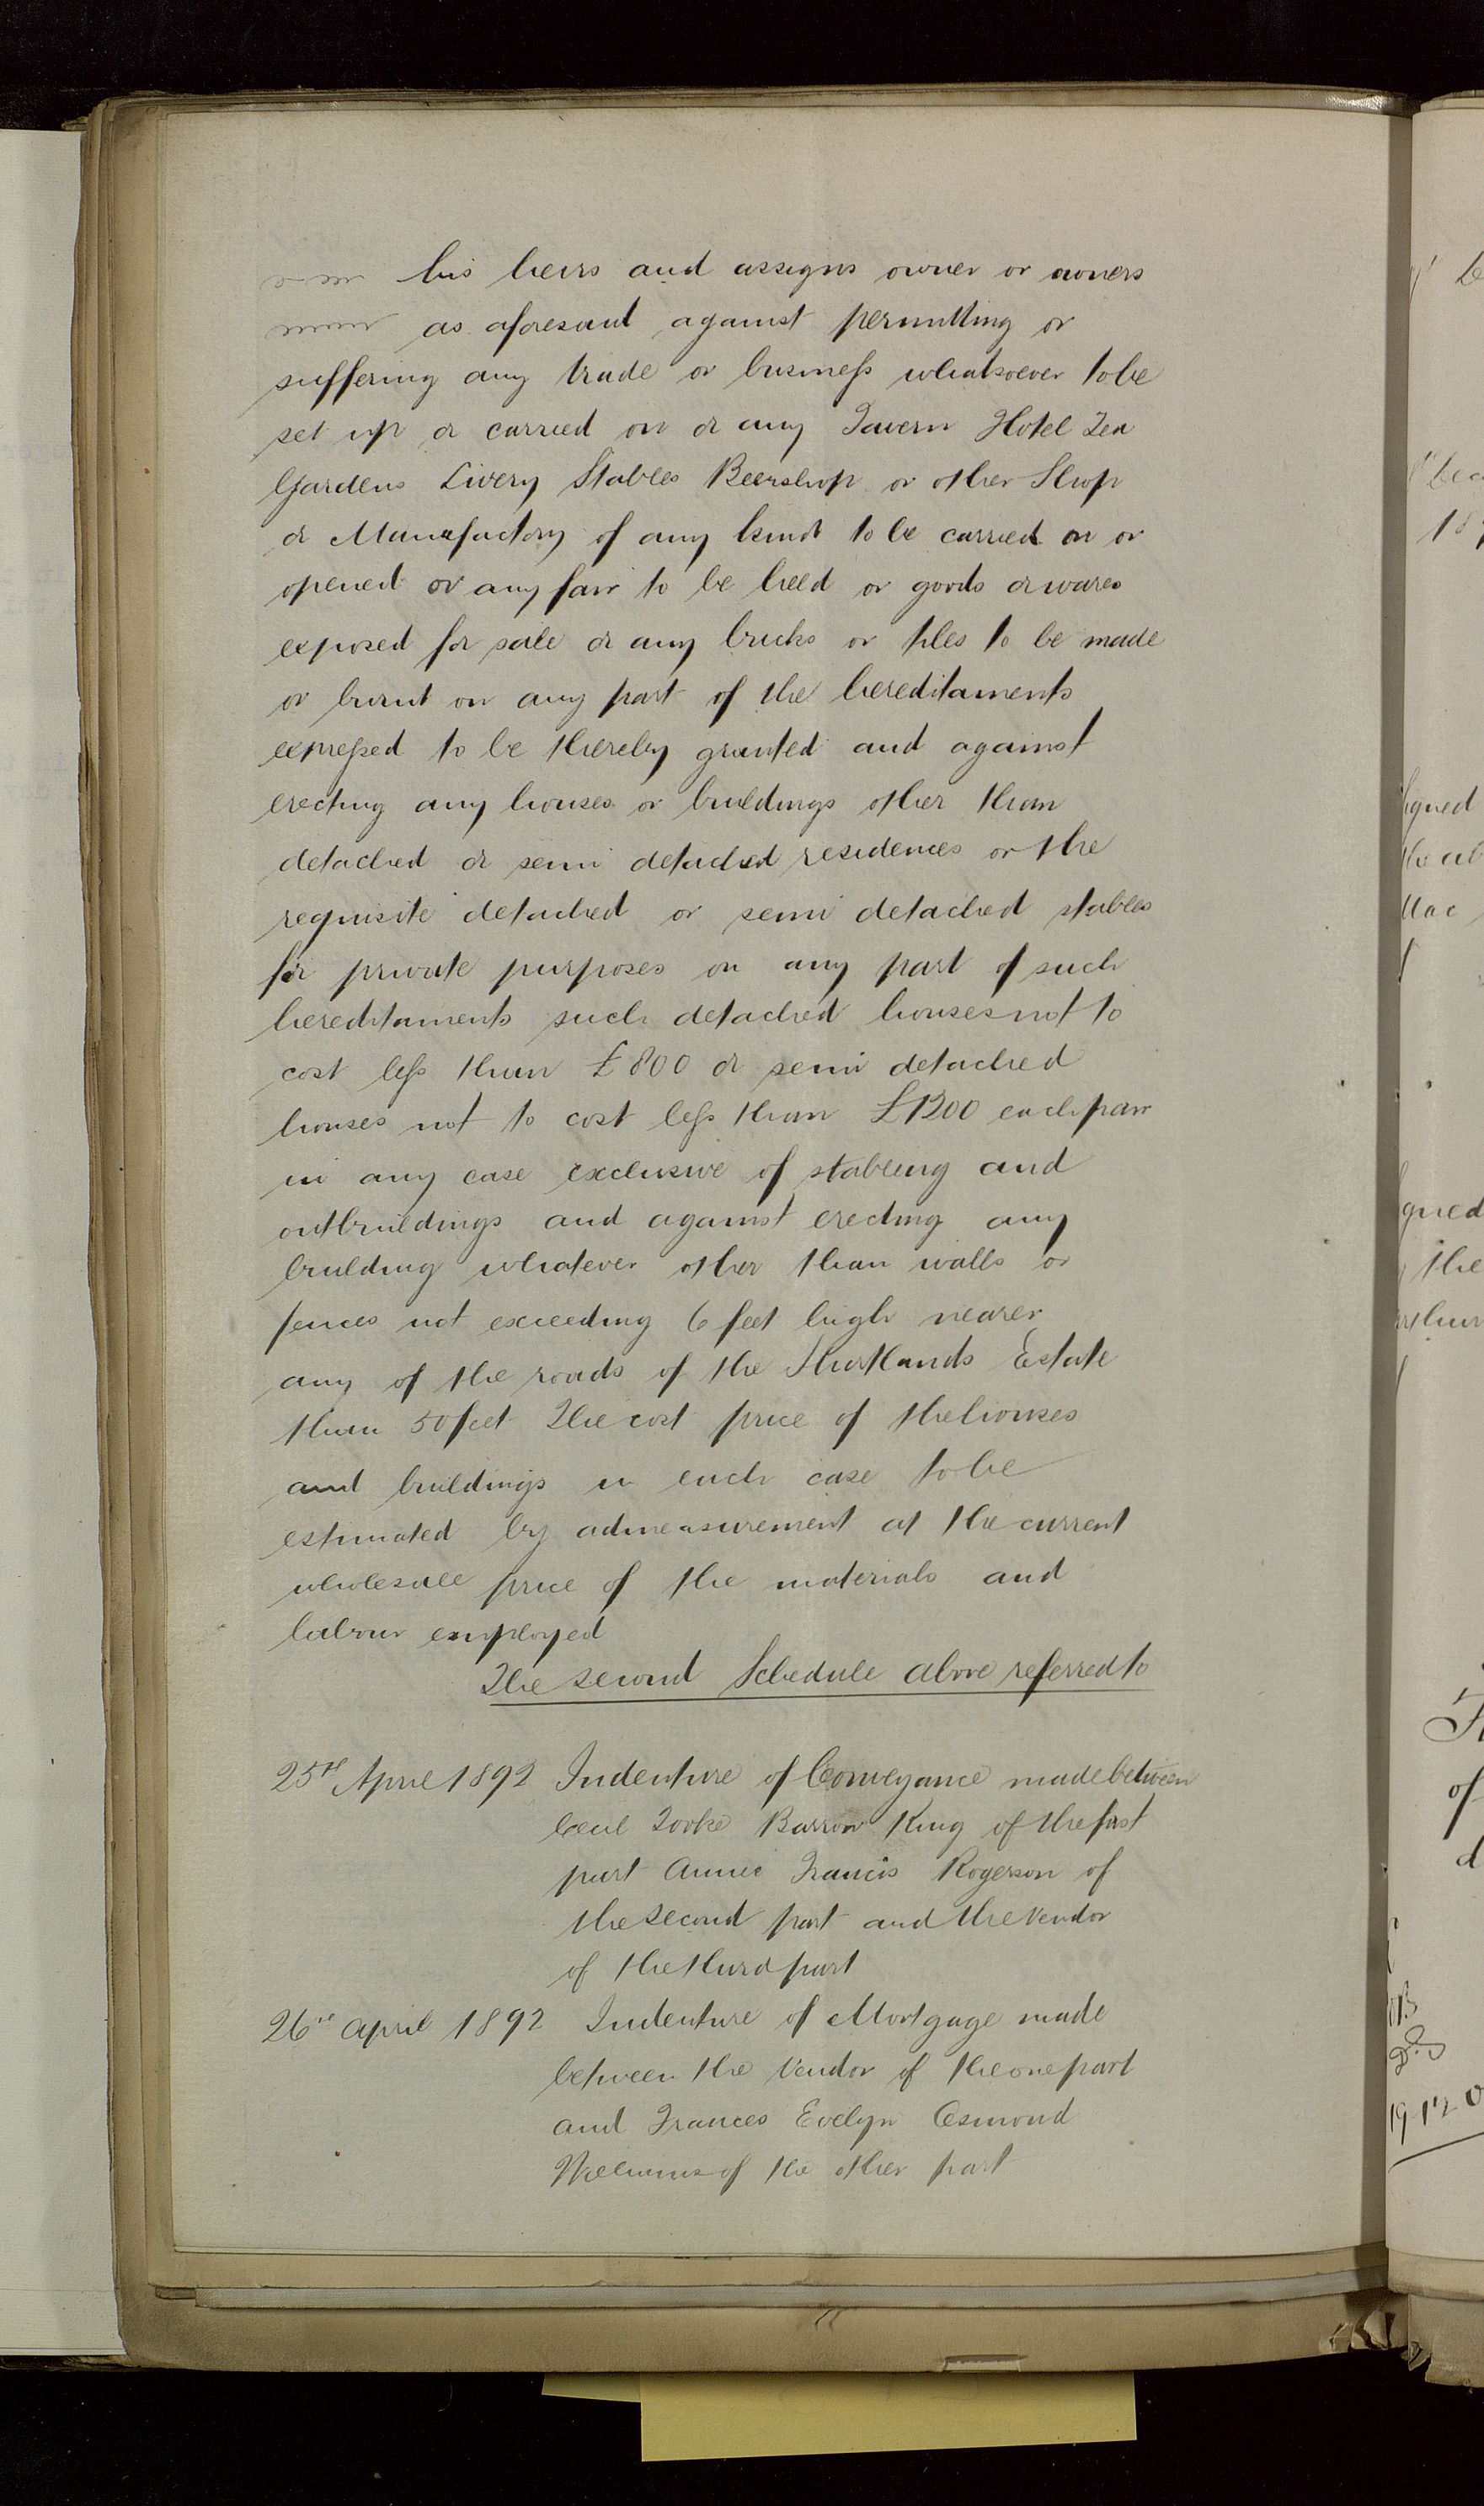 his heirs and assigns owner or owners
as aforesaid against permitting or
suffering any trade or business whatsoever to be
set up or carried on or any Tavern Hotel Tea
Gardens Livery Stables Beershop or other Shop
or Manufactory of any kind to be carried on or
opened or any fair to be held or goods or wares
exposed for sale or any bricks or tiles to be made
or burnt on any part of the hereditaments
expressed to be thereby granted and against
erecting any houses or buildings other than
detached or semi detached residences or the
requisite detached or semi detached stables
for private purposes on any part of such
hereditaments such detached houses not to
cost less than £800 or semi detached
houses not to cost less than £1200 each pair
in any case exclusive of stabling and
outbuildings and against erecting any
building whatever other than walls or
fences not exceeding 6 feet high nearer
any of the roads of the Shortlands Estate
than 50 feet The cost price of the houses
and buildings in each case to be
estimated by admeasurement at the current
wholesale price of the materials and
labour employed
The second Schedule above referred to
25th April 1892 Indenture of Conveyance made between
Cecil Tooke Barron King of the first
part Annie Francis Rogerson of
the second part and the Vendor
of the third part
26th april 1892 Indenture of Mortgage made
between the Vendor of the one part
and Frances Evelyn Osmond
Williams of the other part